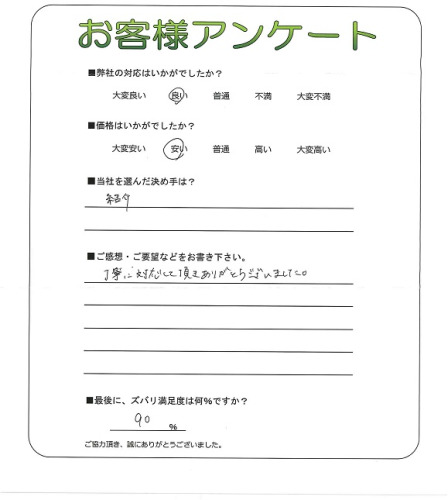 お客様アンケート
■弊社の対応はいかがでしたか？
大変良い 良い 普通 不満 大変不満
■価格はいかがでしたか？
大変安い 安い 普通 高い 大変高い
■当社を選んだ決め手は？
紹介
■ご感想・ご要望などをお書き下さい。
丁寧に対応して頂きありがとうございました。
■最後に、ズバリ満足度は何%ですか？
90 %
ご協力頂き、誠にありがとうございました。